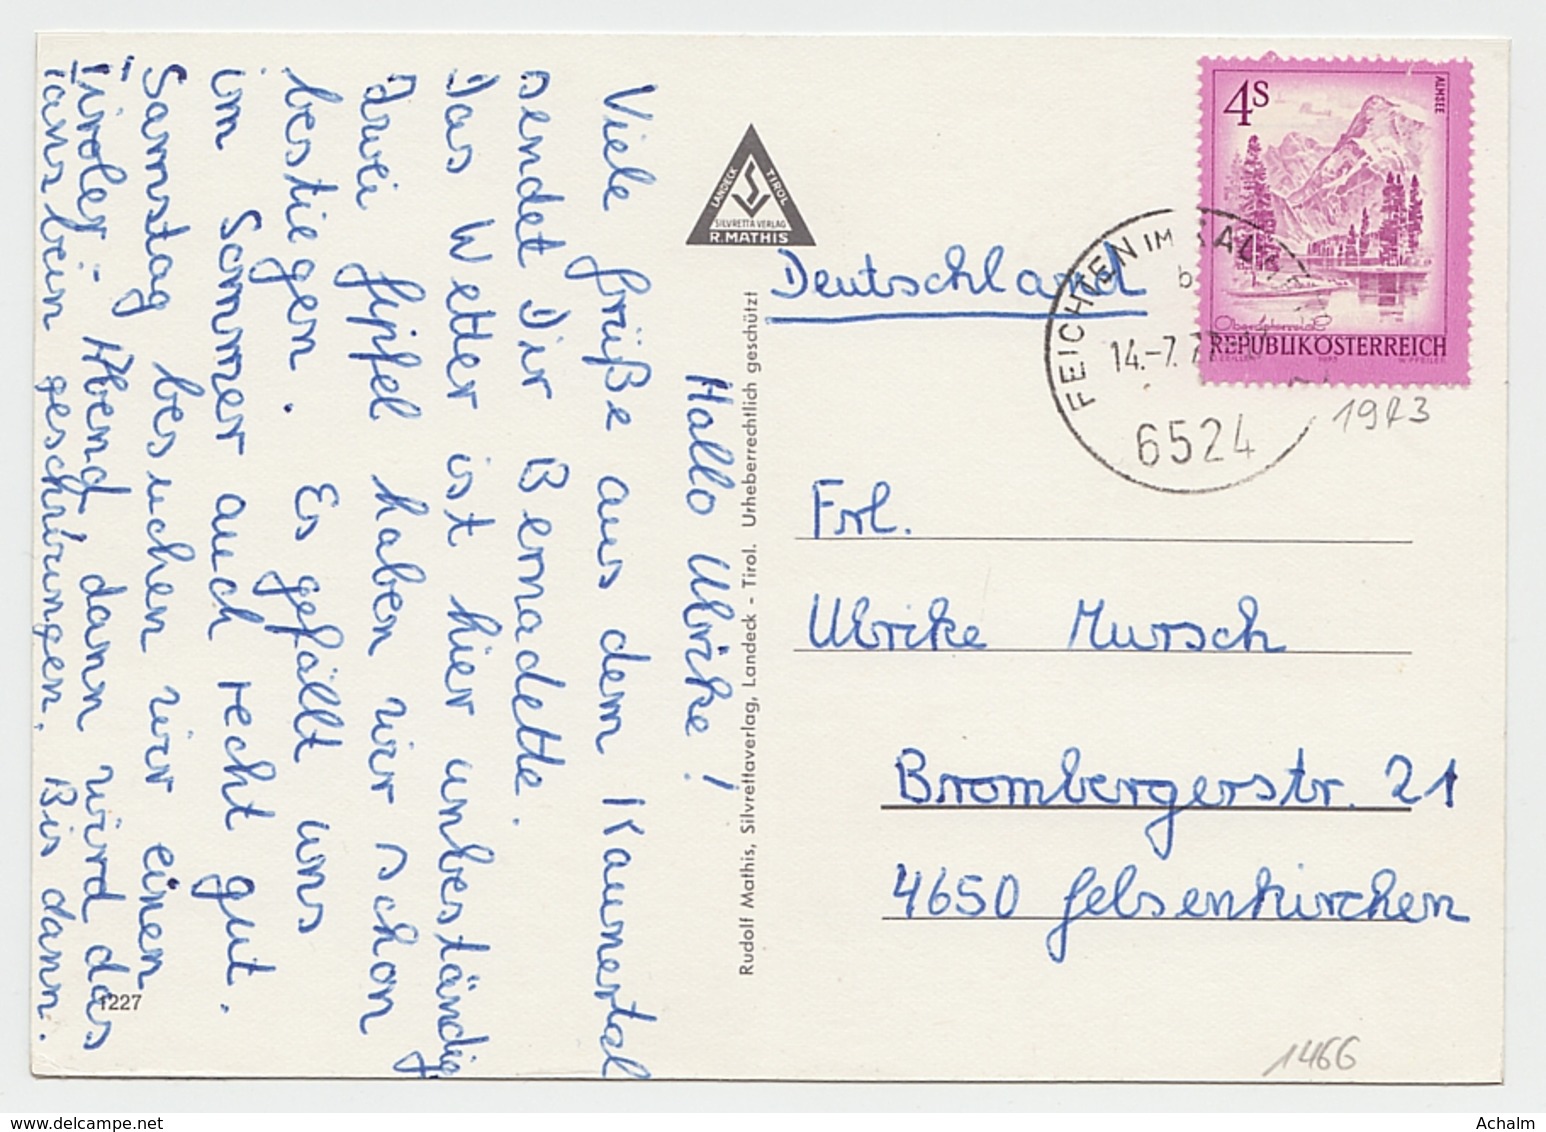 Hallo Ulrike!
Viele Grüße aus dem Kaunertal
sendet Dir Bernadette.
Das Wetter ist hier unbeständig
Zwei Gipfel haben wir schon
bestiegen. Es gefällt uns
im Sommer auch recht gut.
Samstag besuchen wir einen
Tiroler-Abend, dann wird das
Tanzbein geschwungen. Bis dann.
1227
LANDECK TIROL
SILVRETTA VERLAG
R. MATHIS
Rudolf Mathis, Silvrettaverlag, Landeck - Tirol. Urheberrechtlich geschützt
Deutschland
4S
ALMSEE
Oberösterreich
REPUBLIK ÖSTERREICH
1973
W. PFEILER
FEICHTEN IM
b
14.-7.
6524
1973
Frl.
Ulrike Mursch
Brombergerstr. 21
4650 Gelsenkirchen
1466
www.delcampe.net
Achalm